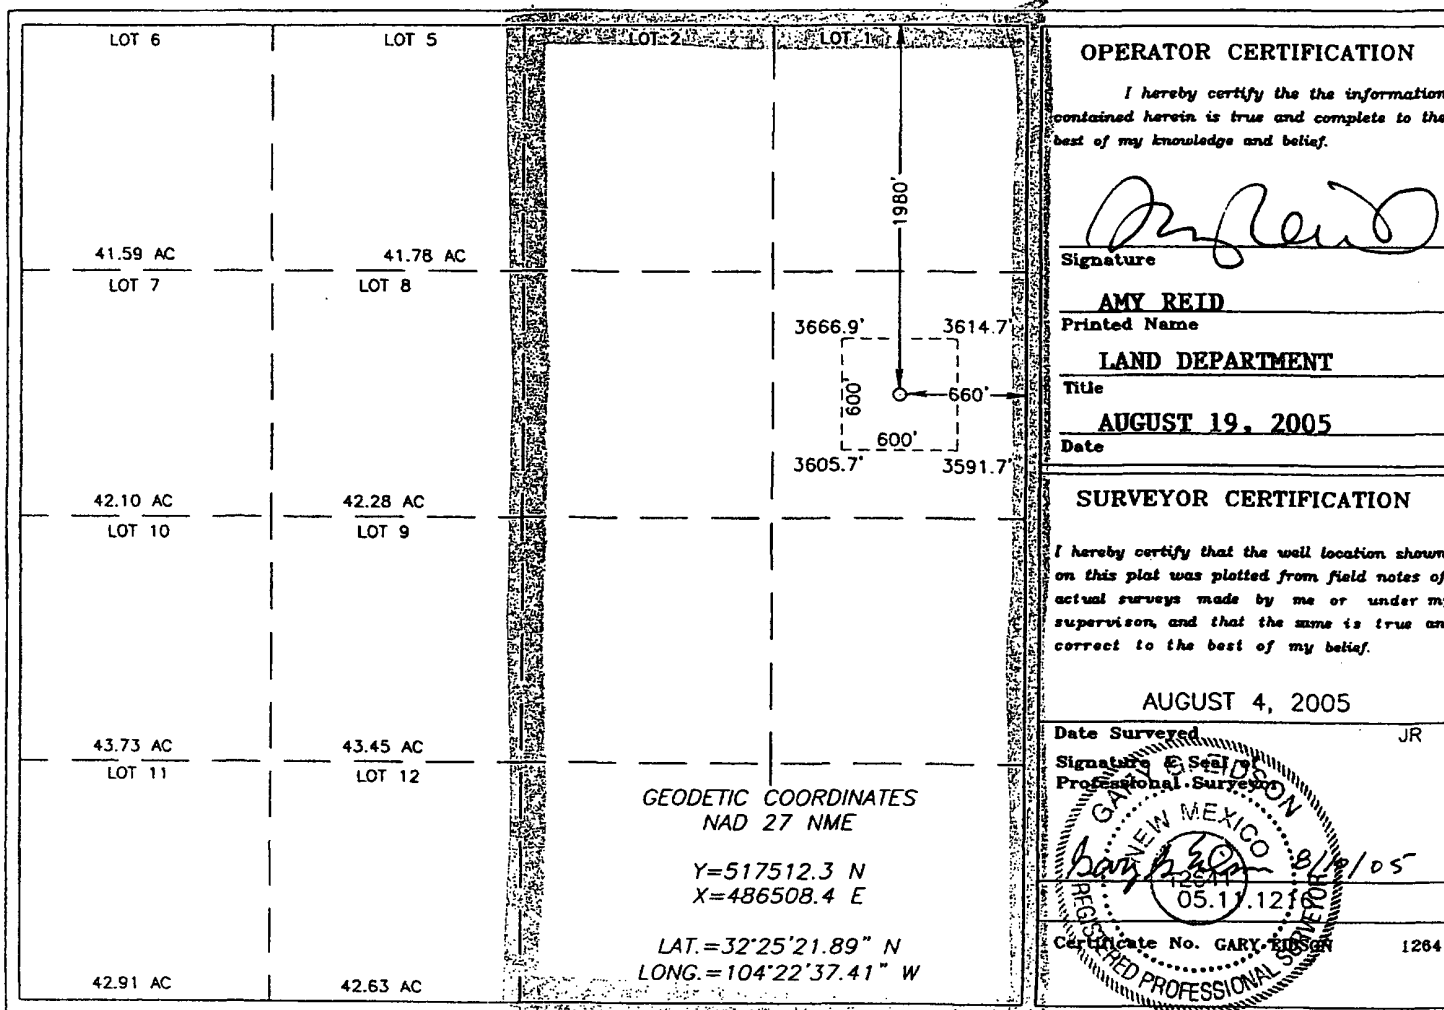 LOT 6
LOT 5
LOT 2
LOT 1
1980'
41.59 AC
41.78 AC
LOT 7
LOT 8
3666.9'
3614.7'
600'
660'
600'
3605.7'
3591.7'
42.10 AC
42.28 AC
LOT 10
LOT 9
43.73 AC
43.45 AC
LOT 11
LOT 12
GEODETIC COORDINATES
NAD 27 NME
Y=517512.3 N
X=486508.4 E
LAT.=32°25'21.89" N
LONG.=104°22'37.41" W
42.91 AC
42.63 AC
OPERATOR CERTIFICATION
I hereby certify the the information
contained herein is true and complete to the
best of my knowledge and belief.
Amy Reid
Signature
AMY REID
Printed Name
LAND DEPARTMENT
Title
AUGUST 19, 2005
Date
SURVEYOR CERTIFICATION
I hereby certify that the well location shown
on this plat was plotted from field notes of
actual surveys made by me or under
supervison, and that the same is true
correct to the best of my belief.
AUGUST 4, 2005
Date Surveyed JR
Signature & Seal of
Professional Surveyor
GARY G. EIDSON
NEW MEXICO
REGISTERED PROFESSIONAL SURVEYOR
12641
05.11.1216
Certificate No. GARY EIDSON 1264